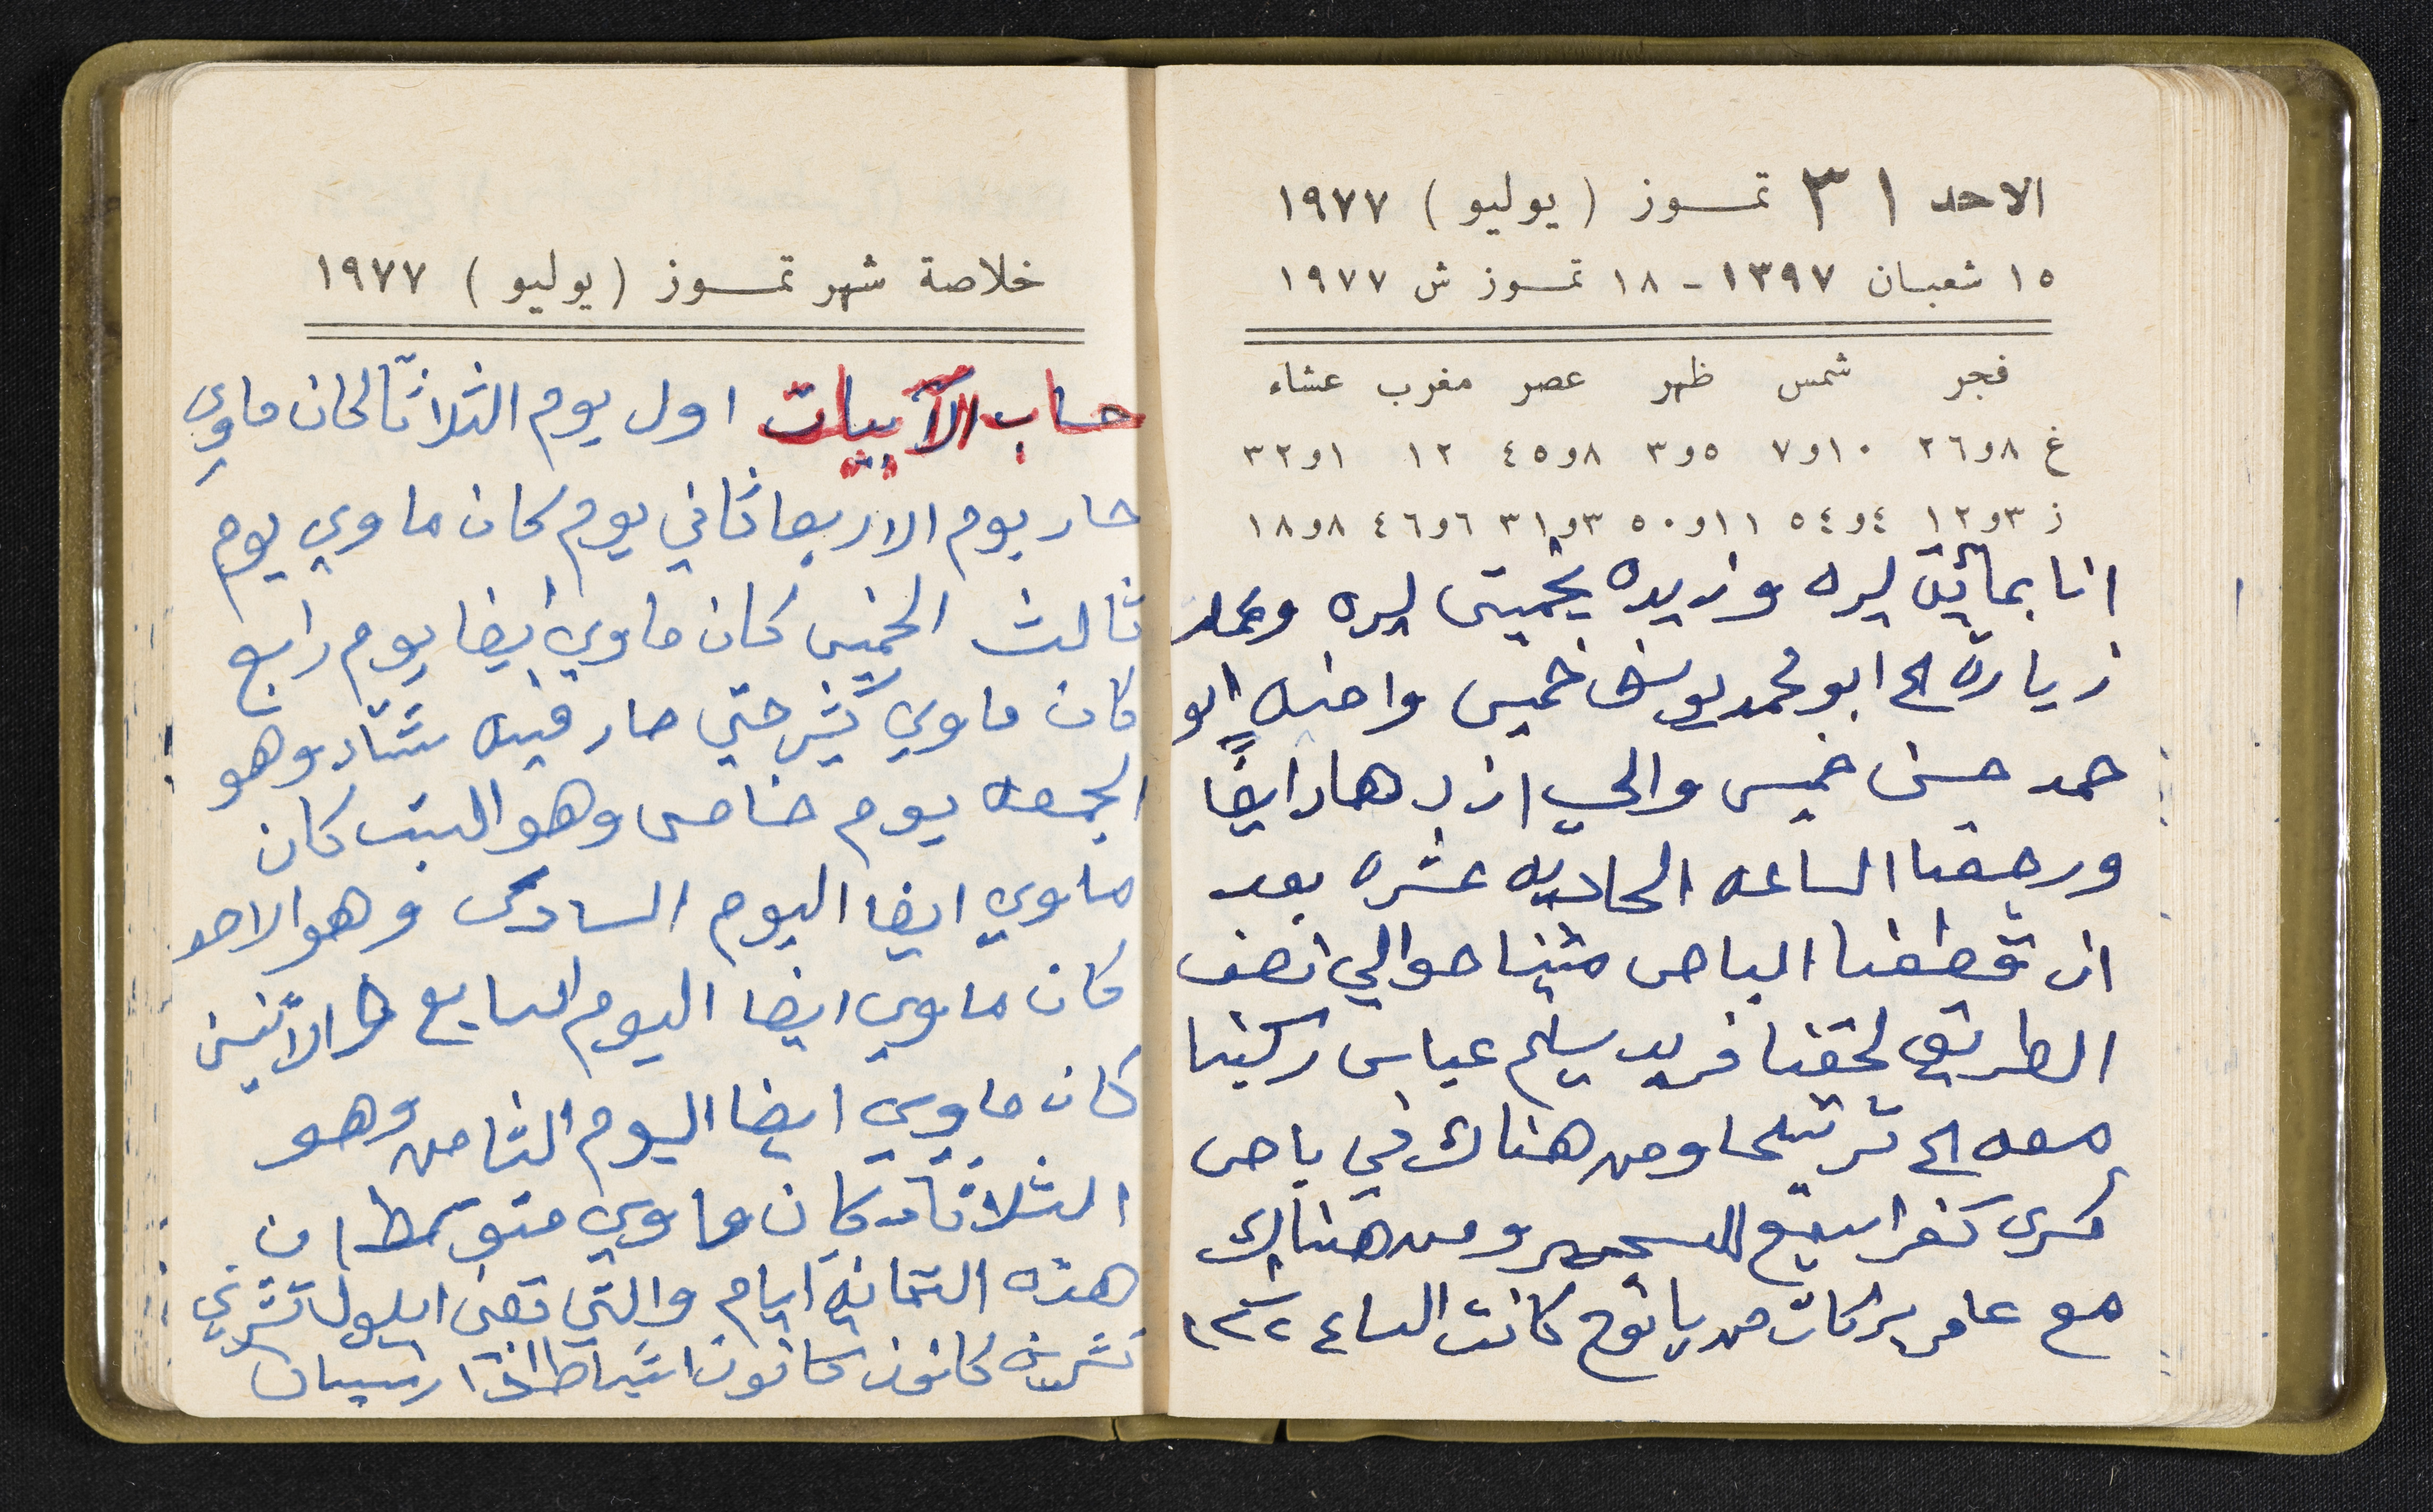 الاحد ٣١ تمـوز ( يوليو ) ١٩٧٧
١٥ شعبـان ١٣٩٧ - ١٨ تمـوز ش ١٩٧٧
فجر شمس ظهر عصر مغرب عشاء
غ ٨و٢٦ ١٠و٧ ٥و٣ ٨و٤٥ ١٢ ١و٣٢
ز ٣و١٢ ٤و٥٤ ١١و٥٠ ٣و٣١ ٦و٤٦ ٨و١٨
انا بمائتين ليره وزيده بخميتى ليره وعملنا
زياره الى ابو محمد يوسف خميس واخيه ابو
حمد حسن خميس والى ازدهار ايضًا
ورجعنا الساعه الحاديه عشره بعد
ان قطعنا الباص مشينا حوالي نصف
الطريق لحقنا فريد سليم عباس ركبنا
معه الى ترشيحا ومن هناك في باص
كسرى كفر اسميع ومن هناك
مع عامر بركات من يانوح كانت الساع
خلاصة شهر تمـوز ( يوليو ) ١٩٧٧
حساب الآبيات اول يوم الثلاثا كان ماوي
حار يوم الاربعا ثاني يوم كان ماوي يوم
ثالث الخميس كان ماوي ايضا يوم رابع
كان ماوي كثير حتي صار فيه شتاد وهو
الجمعه يوم خامس وهو السبت كان
ماوي ايضا اليوم السادس وهو الاحد
كان ماوي ايضا اليوم السابع الاثنين
كان ماوي ايضا اليوم الثامن وهو
الثلاثاء كان ماوي متوسط ان
هذه الثمانية ايام والتي تعني ايلول تشرين
تشرين كانون كانون اشباط اذار نيسان